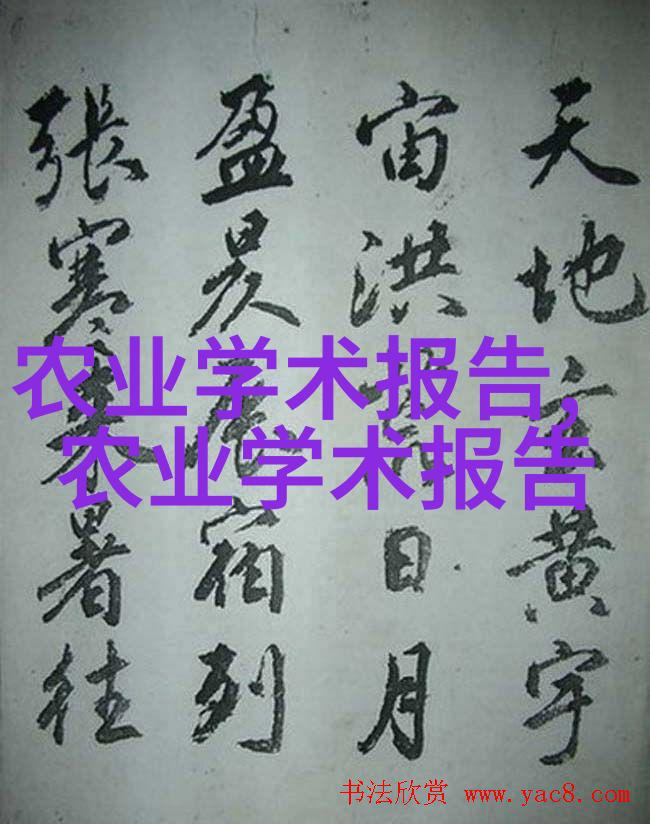 天地玄黄宇
宙洪荒日月
盈昃辰宿列
張寒来暑往
农业学术报告,
农业学术报告
书法欣赏 www.yac8.com